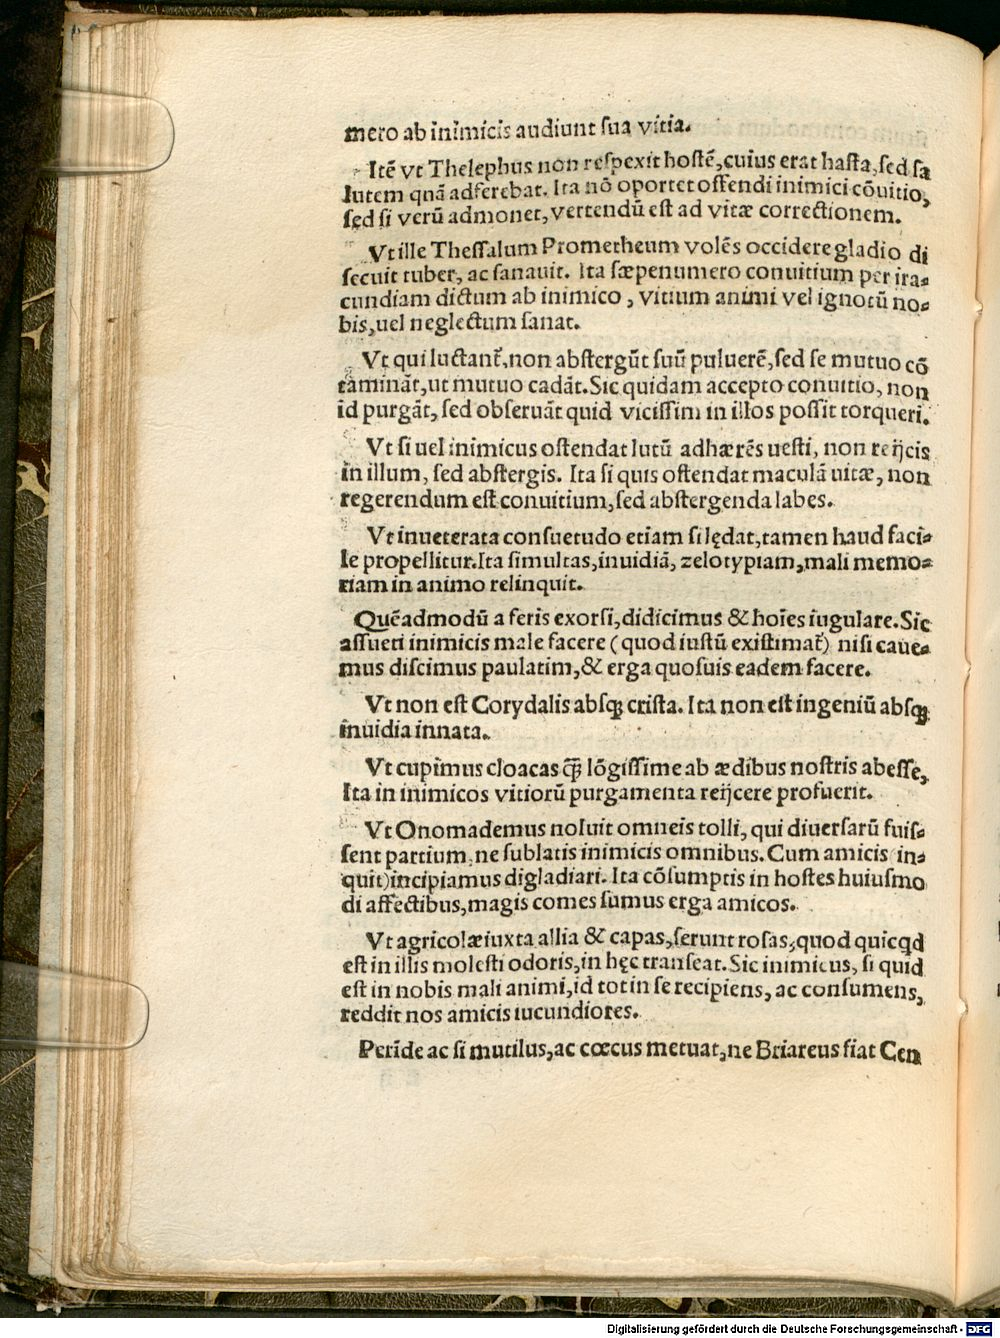 mero ab inimicis audiunt ſua vitia.
Itē vt Thelephus non reſpexit hoſtē, cuius erat haſta, ſed ſa
lutem quā adferebat. Ita nō oportet offendi inimici cōuitio,
ſed ſi verū admonet, vertendū eſt ad vitæ correctionem.
Vt ille Theſſalum Prometheum volēs occidere gladio di
ſecuit tuber, ac ſanauit. Ita ſæpenumero conuitium per ira-
cundiam dictum ab inimico, vitium animi vel ignotū no-
bis, uel neglectum ſanat.
Vt qui luctant̃, non abſtergūt ſuū puluerē, ſed ſe mutuo cō
taminãt, ut mutuo cadãt. Sic quidam accepto conuitio, non
id purgãt, ſed obſeruãt quid viciſſim in illos poſſit torqueri.
Vt ſi uel inimicus oſtendat lutū adhærēs ueſti, non reijcis
in illum, ſed abſtergis. Ita ſi quis oſtendat maculā uitæ, non
regerendum eſt conuitium, ſed abſtergenda labes.
Vt inueterata conſuetudo etiam ſi lędat, tamen haud faci-
le propellitur. Ita ſimultas, inuidiā, zelotypiam, mali memo-
riam in animo relinquit.
Quēadmodū a feris exorſi, didicimus & hoīes iugulare. Sic
aſſueti inimicis male facere (quod iuſtū exiſtimat̃) niſi caue-
mus diſcimus paulatim, & erga quoſuis eadem facere.
Vt non eſt Corydalis abſqꝫ criſta. Ita non eſt ingeniū abſqꝫ
inuidia innata.
Vt cupimus cloacas q̃ lōgiſſime ab ædibus noſtris abeſſe,
Ita in inimicos vitiorū purgamenta reijcere profuerit.
Vt Onomademus noluit omneis tolli, qui diuerſarū fuiſ-
ſent partium, ne ſublatis inimicis omnibus. Cum amicis (in-
quit) incipiamus digladiari. Ita cōſumptis in hoſtes huiuſmo
di affectibus, magis comes ſumus erga amicos.
Vt agricolæ iuxta allia & capas, ſerunt roſas, quod quicqd
eſt in illis moleſti odoris, in hęc tranſeat. Sic inimicus, ſi quid
eſt in nobis mali animi, id tot in ſe recipiens, ac conſumens,
reddit nos amicis iucundiores.
Perīde ac ſi mutilus, ac cœcus metuat, ne Briareus fiat Cen
Digitalisierung gefördert durch die Deutsche Forschungsgemeinschaft - DFG